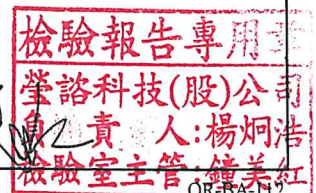 檢驗報告專用章
瑩諮科技(股)公司
負責人:楊炯浩
檢驗室主管:鐘美紅
QR-BA-142